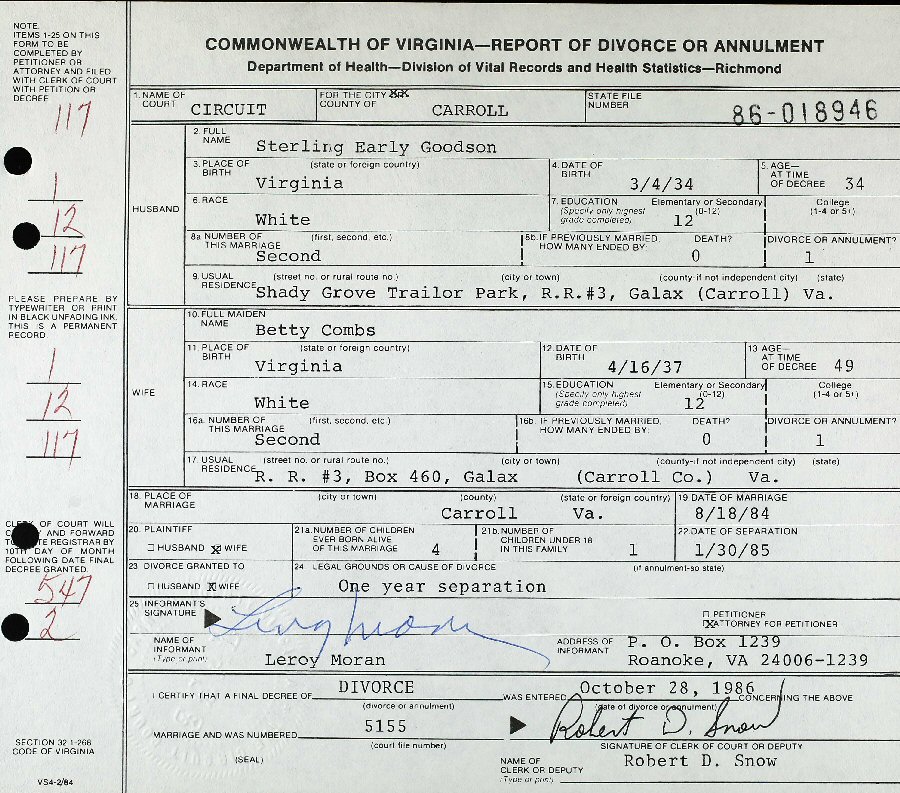 NOTE.
ITEMS 1-25 ON THIS
FORM TO BE
COMPLETED BY
PETITIONER OR
ATTORNEY AND FILED
WITH CLERK OF COURT
WITH PETITION OR
DECREE
117
1
12
117
PLEASE PREPARE BY
TYPEWRITER OR PRINT
IN BLACK UNFADING INK.
THIS IS A PERMANENT
RECORD.
1
12
117
CLERK OF COURT WILL
AND FORWARD
TO STATE REGISTRAR BY
10TH DAY OF MONTH
FOLLOWING DATE FINAL
DECREE GRANTED.
547
2
SECTION 32.1-268
CODE OF VIRGINIA
VS4-2/84
COMMONWEALTH OF VIRGINIA—REPORT OF DIVORCE OR ANNULMENT
Department of Health—Division of Vital Records and Health Statistics—Richmond
1. NAME OF COURT CIRCUIT FOR THE CITY OR COUNTY OF CARROLL STATE FILE NUMBER 86-018946
HUSBAND
2. FULL NAME Sterling Early Goodson
3. PLACE OF BIRTH (state or foreign country) Virginia 4. DATE OF BIRTH 3/4/34 5. AGE— AT TIME OF DECREE 34
6. RACE White 7. EDUCATION (Specify only highest grade completed) Elementary or Secondary (0-12) 12 College (1-4 or 5+)
8a NUMBER OF THIS MARRIAGE (first, second, etc.) Second 8b. IF PREVIOUSLY MARRIED, HOW MANY ENDED BY: DEATH? 0 DIVORCE OR ANNULMENT? 1
9. USUAL RESIDENCE (street no. or rural route no.) (city or town) (county if not independent city) (state)
Shady Grove Trailor Park, R.R.#3, Galax (Carroll) Va.
WIFE
10. FULL MAIDEN NAME Betty Combs
11. PLACE OF BIRTH (state or foreign country) Virginia 12. DATE OF BIRTH 4/16/37 13 AGE— AT TIME OF DECREE 49
14. RACE White 15. EDUCATION (Specify only highest grade completed) Elementary or Secondary (0-12) 12 College (1-4 or 5+)
16a. NUMBER OF THIS MARRIAGE (first, second, etc.) Second 16b. IF PREVIOUSLY MARRIED, HOW MANY ENDED BY: DEATH? 0 DIVORCE OR ANNULMENT? 1
17. USUAL RESIDENCE (street no. or rural route no.) (city or town) (county-if not independent city) (state)
R. R. #3, Box 460, Galax (Carroll Co.) Va.
18. PLACE OF MARRIAGE (city or town) (county) Carroll (state or foreign country) Va. 19 DATE OF MARRIAGE 8/18/84
20. PLAINTIFF HUSBAND X WIFE 21a. NUMBER OF CHILDREN EVER BORN ALIVE OF THIS MARRIAGE 4 21b. NUMBER OF CHILDREN UNDER 18 IN THIS FAMILY 1 22. DATE OF SEPARATION 1/30/85
23 DIVORCE GRANTED TO HUSBAND X WIFE 24 LEGAL GROUNDS OR CAUSE OF DIVORCE (if annulment-so state) One year separation
25 INFORMANT'S SIGNATURE PETITIONER
X ATTORNEY FOR PETITIONER
NAME OF INFORMANT (Type or print) Leroy Moran ADDRESS OF INFORMANT P. O. Box 1239
Roanoke, VA 24006-1239
I CERTIFY THAT A FINAL DECREE OF DIVORCE WAS ENTERED October 28, 1986 CONCERNING THE ABOVE
(divorce or annulment) (date of divorce or annulment)
MARRIAGE AND WAS NUMBERED 5155 Robert D. Snow
(court file number) SIGNATURE OF CLERK OF COURT OR DEPUTY
(SEAL) NAME OF CLERK OR DEPUTY (Type or print) Robert D. Snow